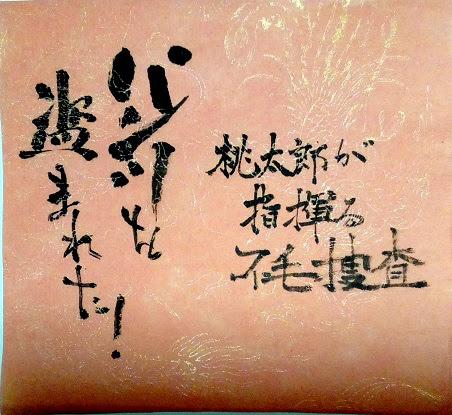 桃太郎が
指揮る
不毛捜査
を
盗まれた!